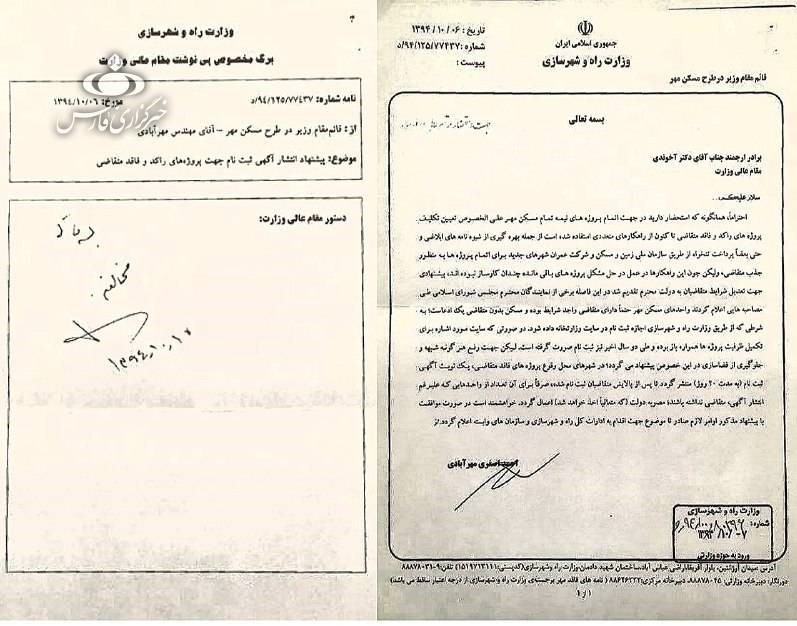 وزارت راه و شهرسازی
برگ مخصوص پی نوشت مقام عالی وزارت
خبرگزاری فارس
نامه شماره: ۹۴/۱۲۵/۷۷۴۳۷/د مورخ: ۱۳۹۴/۱۰/۰۶
از: قائم‌مقام وزیر در طرح مسکن مهر – آقای مهندس مهرآبادی
موضوع: پیشنهاد انتشار آگهی ثبت نام جهت پروژه‌های راکد و فاقد متقاضی
دستور مقام عالی وزارت:
مخالفم.
۱۳۹۴/۱۰/۱۲
جمهوری اسلامی ایران
وزارت راه و شهرسازی
تاریخ : ۱۳۹۴/۱۰/۰۶
شماره : ۹۴/۱۲۵/۷۷۴۳۷/د
پیوست :
قائم مقام وزیر در طرح مسکن مهر
بسمه تعالی
برادر ارجمند جناب آقای دکتر آخوندی
مقام عالی وزارت
سلام علیکم،..
احتراماً، همانگونه که استحضار دارید در جهت اتمام پروژه های نیمه تمام مسکن مهر علی الخصوص تعیین تکلیف
پروژه های راکد و فاقد متقاضی تا کنون از راهکارهای متعددی استفاده شده است از جمله بهره گیری از شیوه نامه های ابلاغی و
حتی بعضاً پرداخت تنخواه از طریق سازمان ملی زمین و مسکن و شرکت عمران شهرهای جدید برای اتمام پروژه ها به منظور
جذب متقاضی، ولیکن چون این راهکارها در عمل در حل مشکل پروژه های باقی مانده چندان کارساز نبوده اند، پیشنهادی
جهت تعدیل شرایط متقاضیان به دولت محترم تقدیم شد در این فاصله برخی از نمایندگان محترم مجلس شورای اسلامی طی
مصاحبه هایی اعلام کردند واحدهای مسکن مهر حتماً دارای متقاضی واجد شرایط بوده و مسکن بدون متقاضی یک ادعاست؛ به
شرطی که از طریق وزارت راه و شهرسازی اجازه ثبت نام در سایت وزارتخانه داده شود. در صورتی که سایت مورد اشاره برای
تکمیل ظرفیت پروژه ها همواره باز بوده و طی دو سال اخیر نیز ثبت نام صورت گرفته است. لیکن جهت رفع هر گونه شبهه و
جلوگیری از فضاسازی در این خصوص پیشنهاد می گردد؛ در شهرهای محل وقوع پروژه های فاقد متقاضی، یک نوبت آگهی
ثبت نام (به مدت ۲۰ روز) منتشر گردد تا پس از پالایش متقاضیان ثبت نام شده، صرفاً برای آن تعداد از واحدهایی که علیرغم
انتشار آگهی، متقاضی نداشته باشند؛ مصوبه دولت (که متعاقباً اخذ خواهد شد) اعمال گردد. خواهشمند است در صورت موافقت
با پیشنهاد مذکور اوامر لازم صادر تا موضوع جهت اقدام به ادارات کل راه و شهرسازی و سازمان های وابسته اعلام گردد.
احمد اصغری مهرآبادی
وزارت راه و شهرسازی
شماره:
ورود به حوزه وزارتی
آدرس :میدان آرژانتین، بلوار آفریقا،اراضی عباس آباد،ساختمان شهید دادمان،وزارت راه وشهرسازی (کدپستی:۱۵۱۹۷۱۳۱۱۱) تلفن:۹-۸۸۸۷۸۰۳۱
دورنگار: دبیرخانه وزارتی: ۸۸۸۷۸۰۴۵، دبیرخانه مرکزی: ۸۸۶۴۶۳۳۲ ( نامه های فاقد مهر برجسته‌ی وزارت راه و شهرسازی از درجه اعتبار ساقط می باشد)
۱ از ۱